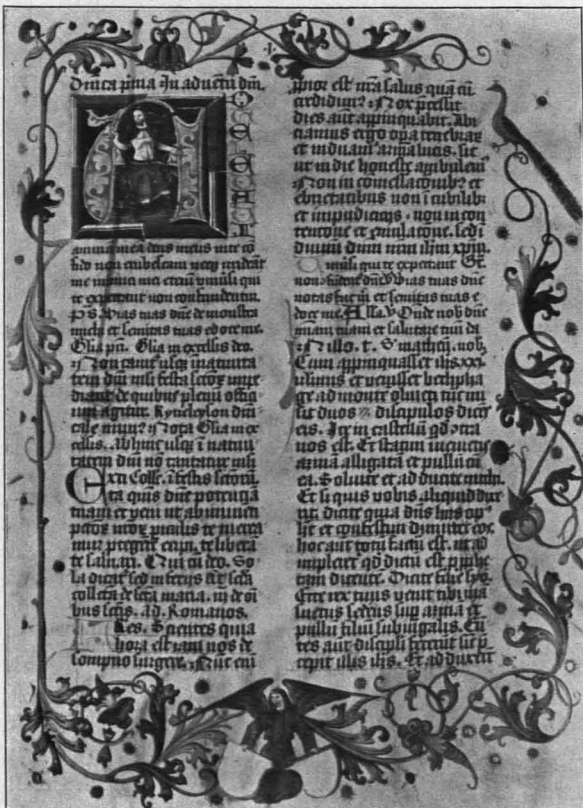 Dnica prima In aduentu dni.
animam mea deus meus in te co
fido non erubescam neqz irrideat
me inimici mei etenim vniuersi qui
te expectant non confundentur
ps Vias tuas dne demonstra
michi et semitas tuas edoce me.
Glia pri. Glia in excelsis deo.
Non usqz natiuita
tem dni nisi festa impe
diant de quibus plenum offici
um agitur. Kyrieleyson dni
cale minus Nota Glia in ex
celsis. Ab hinc usqz i natiui
tatem dni no cantatur nisi
Excita quis dne potenciā
tuam et veni ut ab
pctor nror piculis te
mur te libera
te saluari. Qui cu deo. So
la sed in feriis
collecta de scta maria. in
bus ad. Romanos.
Fres. Scientes quia
hora est iam nos de
sompno surgere. Nūc eni
ppior est nra salus quā cū
credidim9. Nox pcessit
dies aut appinquabit. Abi
ciamus ergo opa tenebrar
et induam arma lucis. sic
ut in die honeste ambulem
Non in comessacoibus et
ebrietatibus non i cubilib
et impudicicijs. non in con
tencione et emulacone. sed i
duimi dnm nrm ihm xpm.
vniusi qui te expectant
non dne Vias tuas dne
notas fac m et semitas tuas e
doce me. Alla. V Ostende nob dne
miam tuam et salutare tuū da
In illo. t. S matheū. nob
Cum appinquasset ihs
solimis et venisset bethpha
ge ad monte oliueti tūc mi
sit duos discipulos dicēs
eis. Ite in castellū qd ctra
vos est. Et statim inuenietis
asinā alligatā et pullū cū
ea. Soluite et adducite michi.
Et si quis vobis aliquid dixe
rit. dicite quia dns hijs op9
ht et confestim dimittet eos
hoc aut totū factū est. ut ad
impleret qd dictū est p pphe
tam dicente. Dicite filie syō.
Ecce rex tuus venit tibi mā
suetus sedens sup asinā et
pullū filiū subiugalis. Eū
tes aut discipli fecerūt sic p
cepit illis ihs. Et adduxert